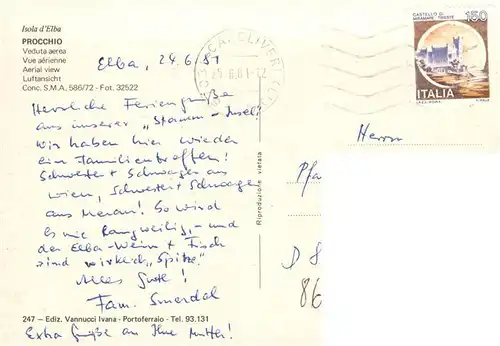 Isola d'Elba
PROCCHIO
Veduta aerea
Vue aérienne
Aerial view
Luftansicht
Conc. S.M.A. 586/72 - Fot. 32522
Elba, 24.6/81
Herzliche Feriengrüße
aus unserer "Stamm-Insel"!
Wir haben hier wieder
ein Familientreffen!
Schwester + Schwager aus
Wien, Schwester + Schwager
aus Meran! So wird
es nie langweilig,- und
der Elba-Wein + Fisch
sind wirklich "Spitze".
Alles Gute!
Fam.
247 — Ediz. Vannucci Ivana - Portoferraio - Tel. 93.131
Extra Grüße an Ihre Mutter!
Riproduzione vietata
CASTELLO DI
MIRAMARE TRIESTE
150
ITALIA
Herrn
Pfa
D 8
86